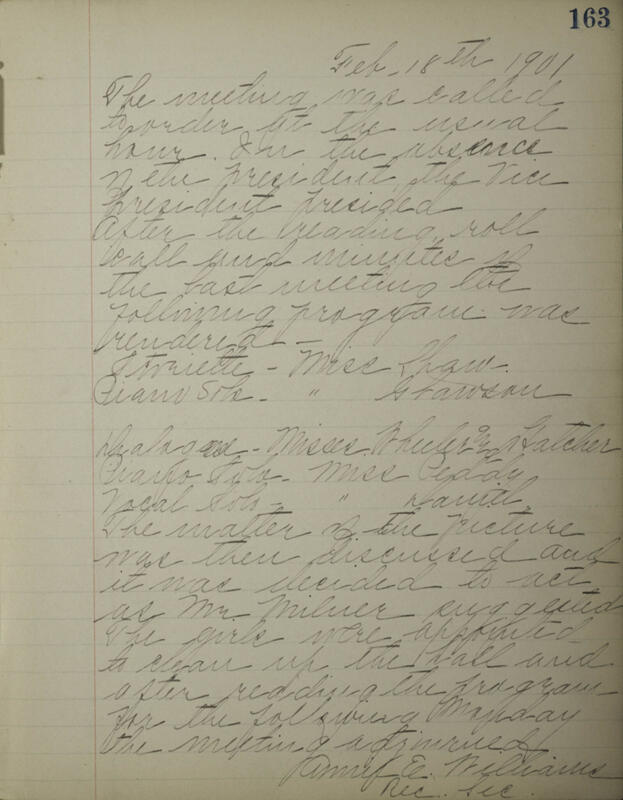 163
Feb. 18th 1901
The meeting was called
to order at the usual
hour. In the absence
of the President, the Vice
President presided
After the reading, roll
call and minutes of
the last meeting the
following program was
rendered —
Storiette - Miss Shaw.
Piano Solo - " Slawson
Dialogue - Misses Wheeler & Hatcher
Piano Solo - Miss Peddy
Vocal Solo - "
The matter of the picture
was then discussed and
it was decided to act
as Mr. Milner suggested
The girls were appointed
to clean up the hall and
after reading the program
for the following Monday
the meeting adjourned
E. Williams
Rec. Sec.